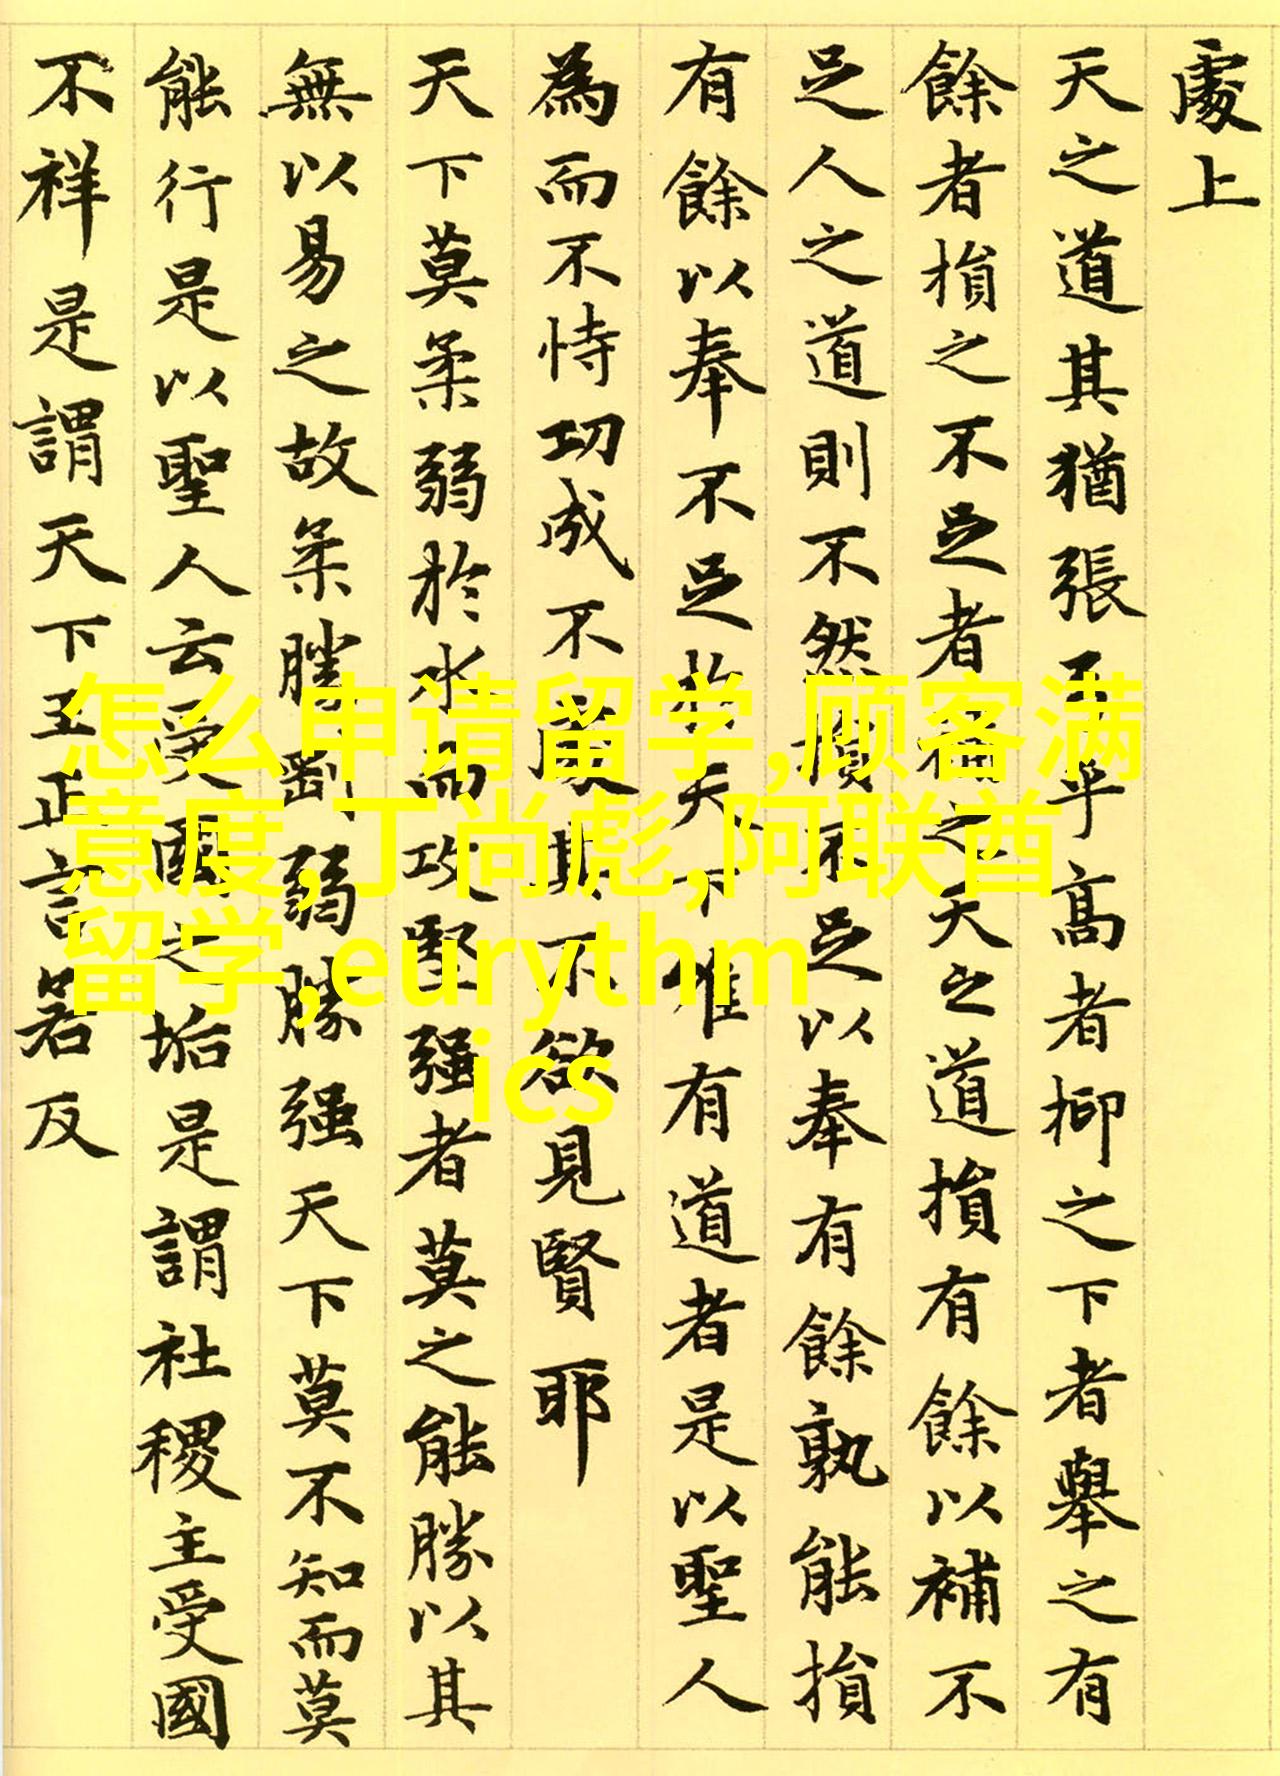 處上
天之道其猶張弓乎高者抑之下者舉之有
餘者損之不足者補之天之道損有餘以補不
足人之道則不然損不足以奉有餘孰能損
有餘以奉不足於天下惟有道者是以聖人
為而不恃功成不處其不欲見賢耶
天下莫柔弱於水而攻堅强者莫之能勝以其
無以易之故柔勝剛弱勝强天下莫不知而莫
能行是以聖人云受國之垢是謂社稷主受國
不祥是謂天下王正言若反
怎么申请留学,顾客满
意度,丁尚彪,阿联酋
留学,eurythm
ics